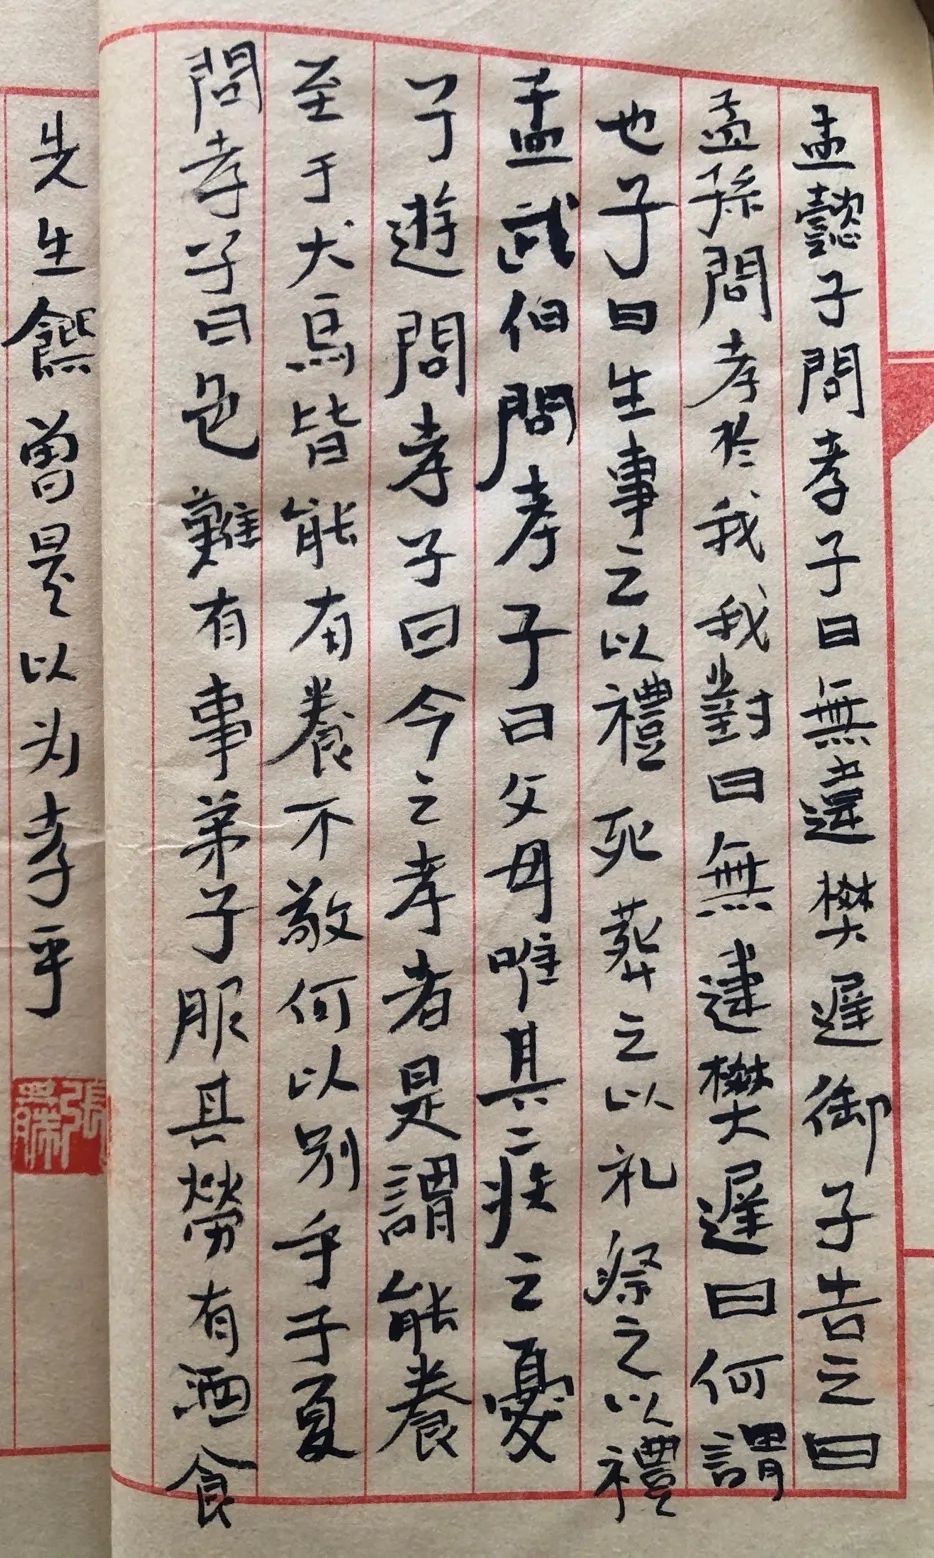 孟懿子問孝子曰無違樊遲御子告之曰
孟孫問孝於我我對曰無違樊遲曰何謂
也子曰生事之以禮死葬之以礼祭之以禮
孟武伯問孝子曰父母唯其疾之憂
子遊問孝子曰今之孝者是謂能養
至于犬馬皆能有養不敬何以別乎子夏
問孝子曰色難有事弟子服其勞有酒食
先生饌曾是以为孝乎